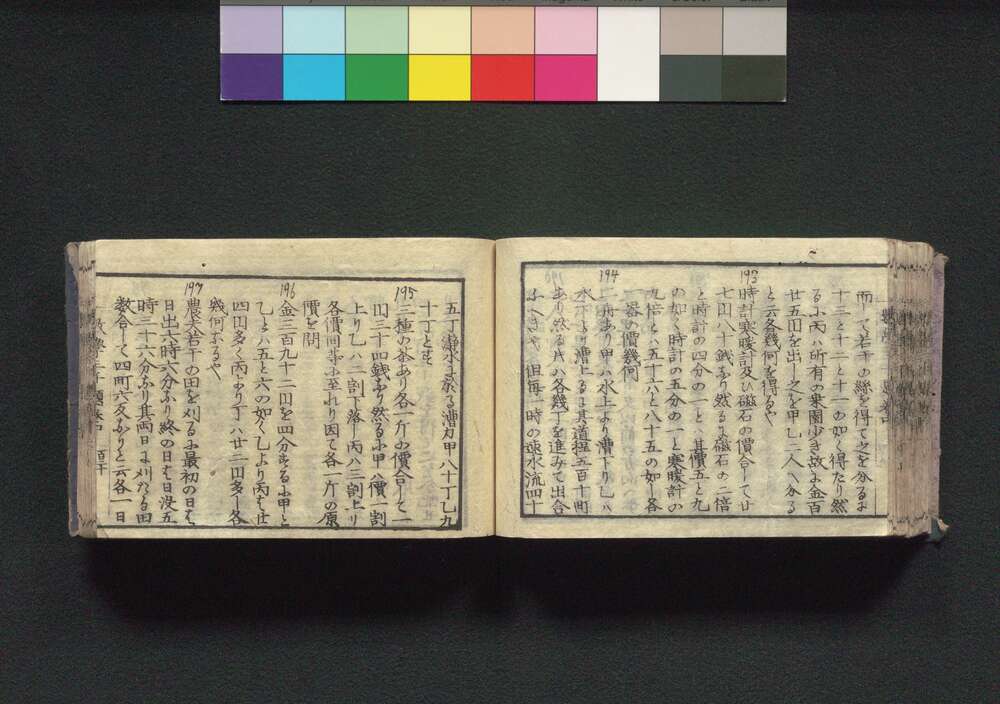 而して若干の絲を得て之を分るに
十三と十二と十一の如く得たり然
るに丙ハ所有の桑園少き故に金百
廿五円を出し之を甲乙二人へ分る
と云各幾何を得るや
193
時計寒暖計及ひ磁石の價合して廿
七円八十銭なり然るに磁石の二倍
と時計の四分の一とハ其價五と九
の如く時計の五分の一と寒暖計の
九倍とハ五十六と八十五の如し各
一器の價幾何
194
二舟あり甲ハ水上より漕下り乙ハ
水下より漕上る其道程五百十町
あり然る时ハ各幾丁を進みて出合
ふへきや 但毎一時の速水流四十
五丁瀞水に於る漕力甲八十丁乙九
十丁とす
195
三種の茶あり各一斤の價合して一
円三十四銭なり然るに甲ハ價一割
上り乙ハ二割下落し丙ハ三割上り
各價同等に至れり因て各一斤の原
價を問
196
金三百九十二円を四分するに甲と
乙とハ五と六の如く乙より丙は廿
四円多く丙より丁ハ廿二円多し各
幾何なるや
197
農夫若干の田を刈るに最初の日は
日出六時六分なり終の日は日没五
時三十六分なり其両日に刈たる田
数合して四町六反なりと云各一日